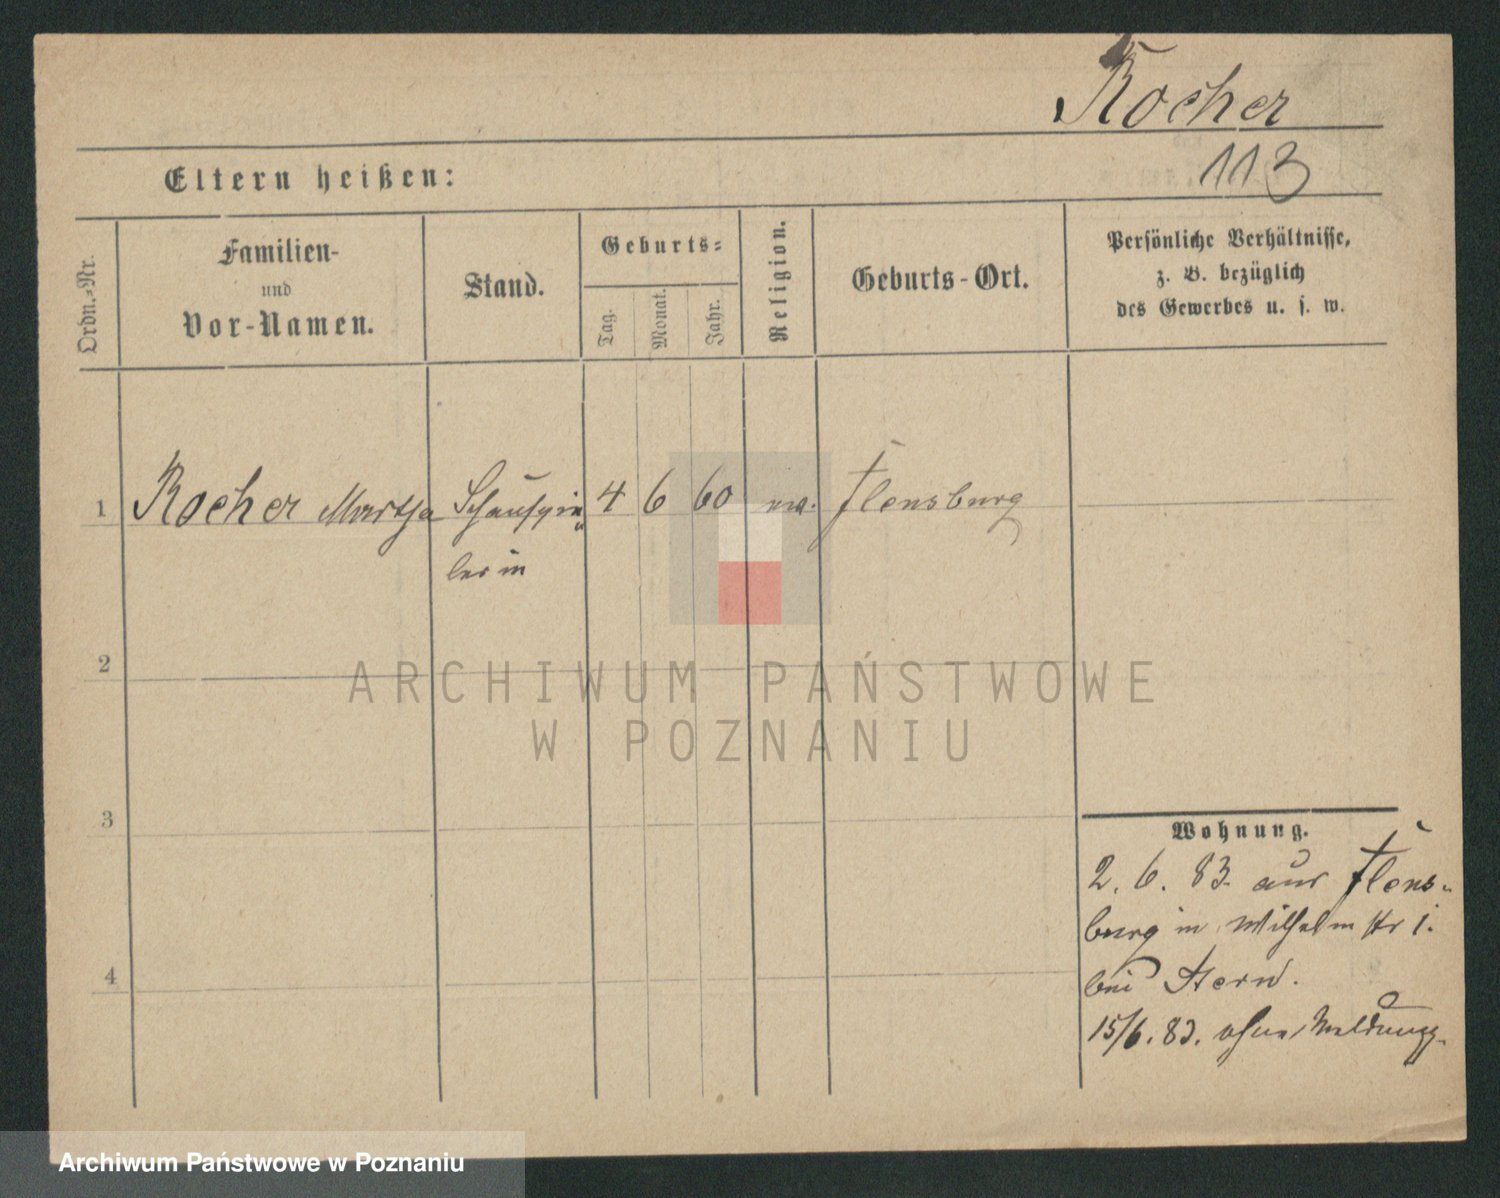 Rocher
113
Eltern heißen:
Ordn.-Nr.
Familien-
und
Vor-Namen.
Stand.
Geburts-
Tag.
Monat.
Jahr.
Religion.
Geburts-Ort.
Persönliche Verhältnisse,
z. B. bezüglich
des Gewerbes u. s. w.
1 Rocher Martha Schauspie 4 6 60 ev. Flensburg
lerin
2
3
4
Wohnung.
2. 6. 83. aus Flens-
burg in Wilhelm str 1.
bei Stern.
15/6. 83. ohne Meldung
ARCHIWUM PAŃSTWOWE
W POZNANIU
Archiwum Państwowe w Poznaniu